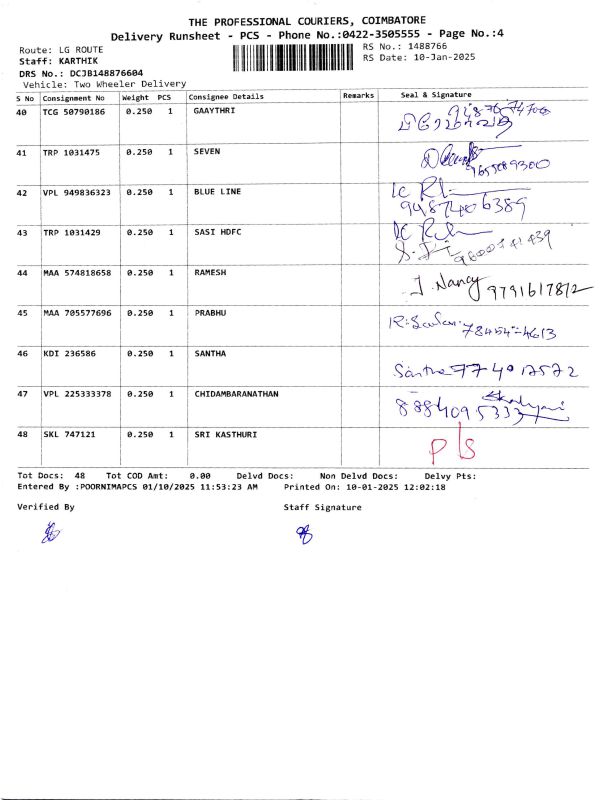 THE PROFESSIONAL COURIERS, COIMBATORE
Delivery Runsheet - PCS - Phone No.:0422-3505555 - Page No.:4
Route: LG ROUTE RS No.: 1488766
Staff: KARTHIK RS Date: 10-Jan-2025
DRS No.: DCJB148876604
Vehicle: Two Wheeler Delivery
S No Consignment No Weight PCS Consignee Details Remarks Seal & Signature
40 TCG 50790186 0.250 1 GAAYTHRI
41 TRP 1031475 0.250 1 SEVEN
42 VPL 949836323 0.250 1 BLUE LINE
9487406389
43 TRP 1031429 0.250 1 SASI HDFC
44 MAA 574818658 0.250 1 RAMESH
J. Nancy 9791617872
45 MAA 705577696 0.250 1 PRABHU
78454-4613
46 KDI 236586 0.250 1 SANTHA
Santha
47 VPL 225333378 0.250 1 CHIDAMBARANATHAN
8884095333
48 SKL 747121 0.250 1 SRI KASTHURI
Tot Docs: 48 Tot COD Amt: 0.00 Delvd Docs: Non Delvd Docs: Delvy Pts:
Entered By :POORNIMAPCS 01/10/2025 11:53:23 AM Printed On: 10-01-2025 12:02:18
Verified By Staff Signature